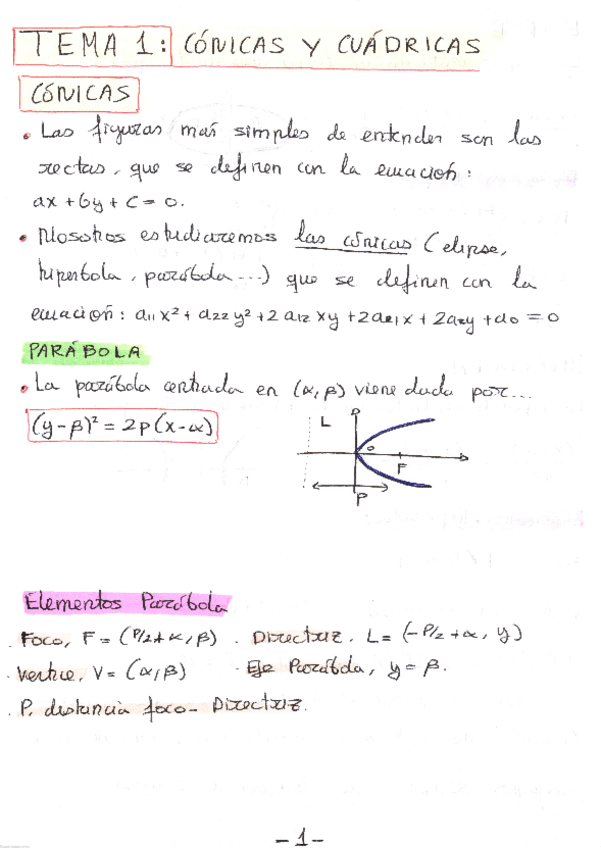 TEMA 1: CÓNICAS Y CUÁDRICAS
CÓNICAS
• Las figuras mas simples de entender son las
rectas, que se definen con la ecuación:
ax + by + c = 0.
• Nosotros estudiaremos las cónicas (elipse,
hiperbola, parábola...) que se definen con la
ecuación: a11 x² + a22 y² + 2 a12 xy + 2a21 x + 2a2y + a0 = 0
PARÁBOLA
• La parábola centrada en (α, β) viene dada por...
(y-β)² = 2p(x-α)
L
0
F
P
Elementos Parábola
. Foco, F = (P/2 + α, β) . Directriz, L = (-P/2 + α, y)
. Vertice, V = (α, β) . Eje Parábola, y = β.
. P. distancia foco - Directriz.
- 1 -